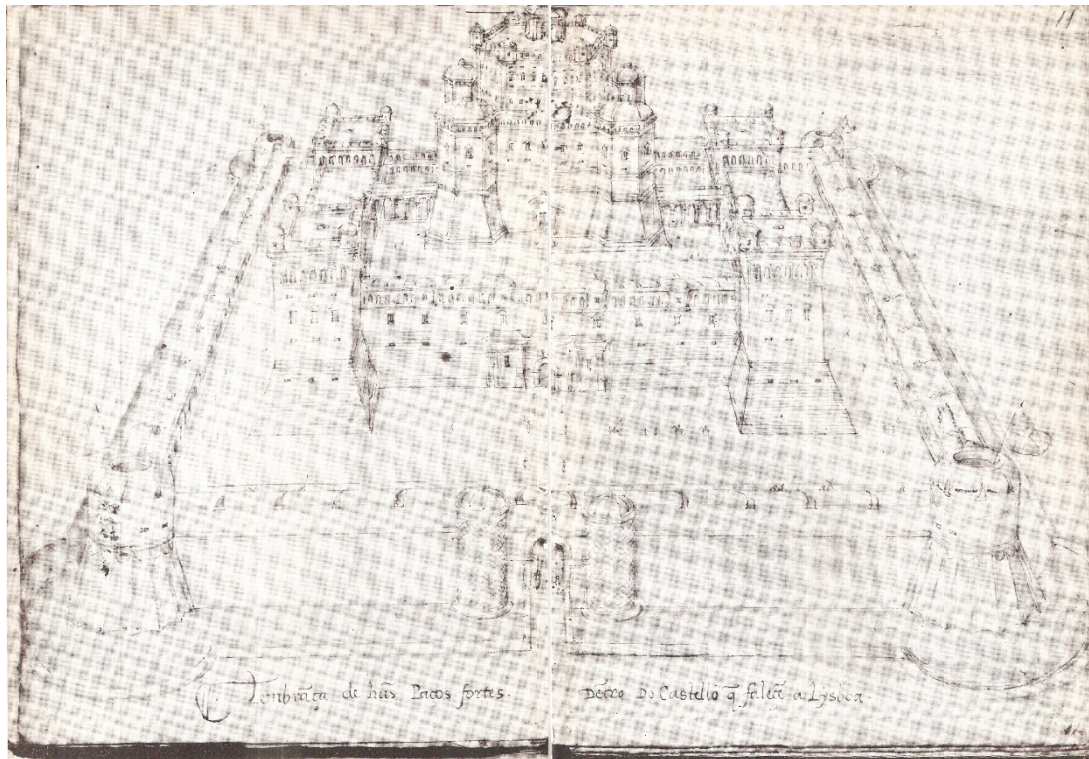 11
Lembrãça de hũs Paços fortes. Dẽtro Do Castello q̃ falecẽ a Lysboa.